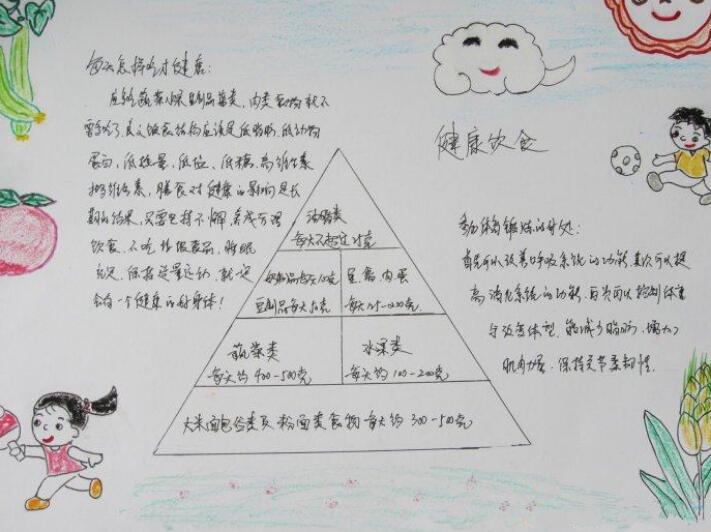 每天怎样吃才健康:
应多吃蔬菜水果豆制品菌类,肉类
食结构应该是低脂肪,低动物
蛋白,低热量,低盐,低糖,高维生素
维生素,膳食对健康的影响是长
期的结果,只要坚持不懈,养成
饮食,不吃垃圾食品,睡眠
充足,保持适量运动,就一定
会有一个健康的好身体!
健康饮食
参加体育锻炼的好处:
首先可以改善呼吸系统的功能,其次可以提
高消化系统的功能,再次可以控制体重
与改变体型,能减少脂肪,增大
肌肉力量,保持关节柔韧性.
油脂类
每天不超过25克
奶制品每天100克
豆制品每天50克
鱼,禽,肉,蛋
每天125-200克
蔬菜类
每天约400-500克
水果类
每天约100-200克
大米面包谷类及粉面类食物每天约300-500克